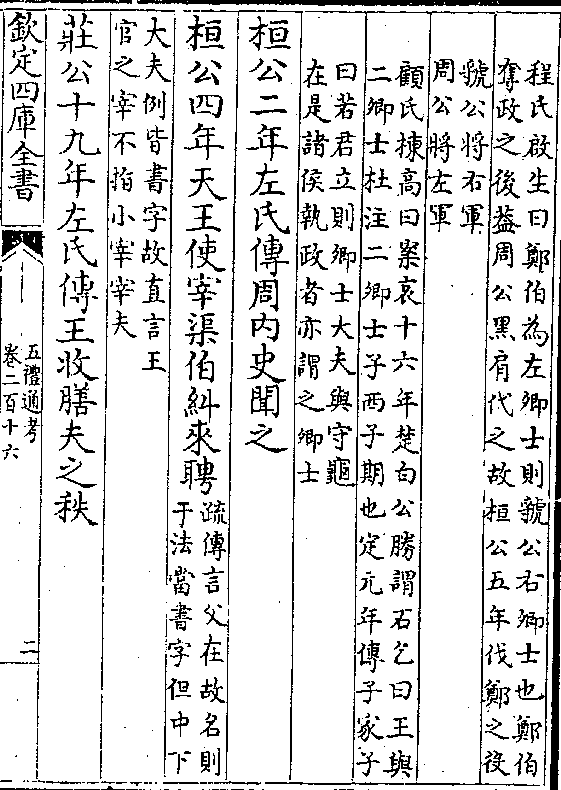 程氏啟生曰鄭伯為左卿士則虢公右卿士也鄭伯
奪政之後葢周公黑肩代之故桓公五年伐鄭之役
虢公將右軍
周公將左軍
顧氏棟高曰案哀十六年楚白公勝謂石乞曰王與
二卿士杜注二卿士子西子期也定元年傳子家子
曰若君立則卿士大夫與守龜
在是諸侯執政者亦謂之卿士
桓公二年左氏傳周内史聞之
桓公四年天王使宰渠伯糾來聘
疏傳言父在故名則
于法當書字但中下
大夫例皆書字故直言王
官之宰不指小宰宰夫
莊公十九年左氏傳王收膳夫之秩
欽定四庫全書
五禮通考
卷二百十六
二